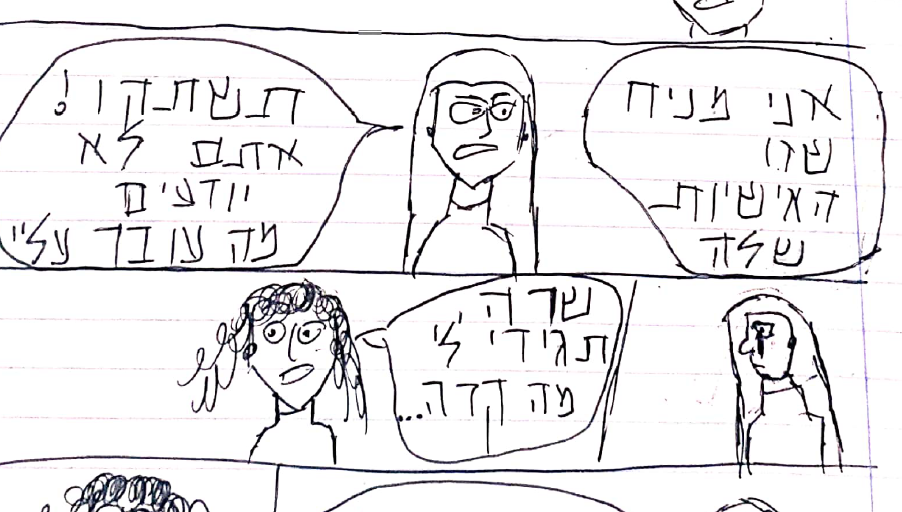 אני מניח
שזו
האישיות
שלה
תשתקו!
אתם לא
יודעים
מה עובר עליי
שרה
תגידי לי
מה קרה...